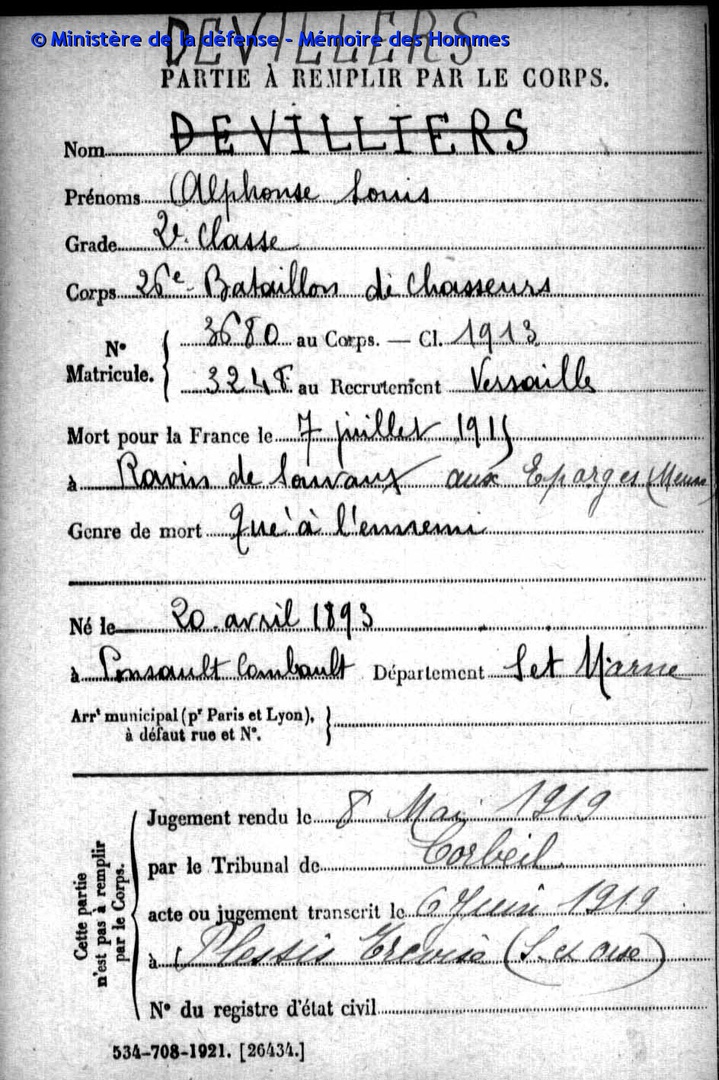 © Ministère de la défense - Mémoire des Hommes
DEVILLERS
PARTIE À REMPLIR PAR LE CORPS.
Nom DEVILLIERS
Prénoms Alphonse Louis
Grade 2e classe
Corps 26e Bataillon de Chasseurs
N° Matricule.
3680 au Corps. — Cl. 1913
3248 au Recrutement Versaille
Mort pour la France le 7 juillet 1915
à Ravin de Sonvaux aux Eparges (Meuse
Genre de mort tué à l'ennemi
Né le 20 avril 1893
à Ponsault Combault Département S et Marne
Arrt municipal (pr Paris et Lyon),
à défaut rue et N°.
Cette partie
n'est pas à remplir
par le Corps.
Jugement rendu le 8 Mai 1919
par le Tribunal de Corbeil
acte ou jugement transcrit le 6 Juin 1919
à Plessis Trevise (S. et Oise)
N° du registre d'état civil
534-708-1921. [26434.]